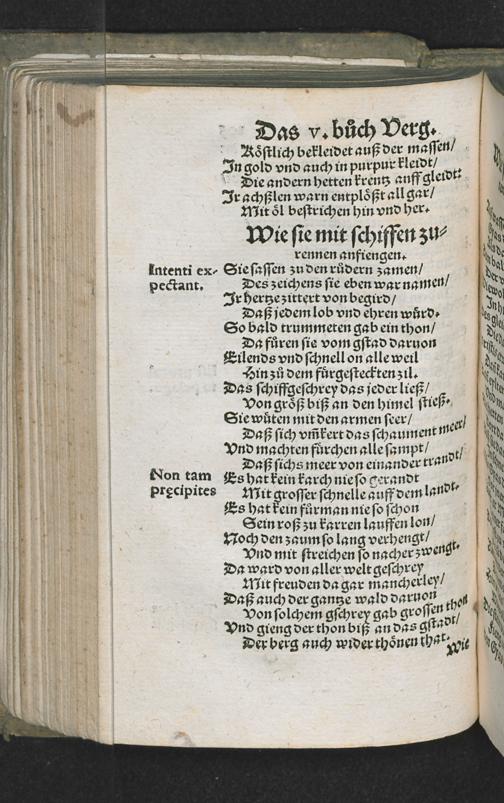 Das v. bůch Verg.
Köstlich bekleidet auß der massen/
In gold vnd auch in purpur kleidt/
Die andern hetten krentz auff gleidt:
Ir achßlen warn entplößt all gar/
Mit öl bestrichen hin vnd her.
Wie sie mit schiffen zu-
rennen anfiengen.
Intenti ex-
pectant.
Sie sassen zu den růdern zamen/
Des zeichens sie eben war namen/
Ir hertze zittert von begird/
Daß jedem lob vnd ehren würd.
So bald trummeten gab ein thon/
Da fůren sie vom gstad daruon
Eilends vnd schnell on alle weil
Hin zů dem fürgesteckten zil.
Das schiffgeschrey das jeder ließ/
Von größ biß an den himel stieß.
Sie wůten mit den armen seer/
Daß sich vm̃kert das schaument meer/
Vnd machten fürchen alle sampt/
Daß sichs meer von einander trandt/
Non tam
pręcipites
Es hat kein karch nie so gerandt
Mit grosser schnelle auff dem landt.
Es hat kein fůrman nie so schon
Sein roß zu karren lauffen lon/
Noch den zaum so lang verhengt/
Vnd mit streichen so nacher zwengt.
Da ward von aller welt geschrey
Mit freuden da gar mancherley/
Daß auch der gantze wald daruon
Von solchem gschrey gab grossen thon
Vnd gieng der thon biß an das gstadt/
Der berg auch wider thönen that.
Wie